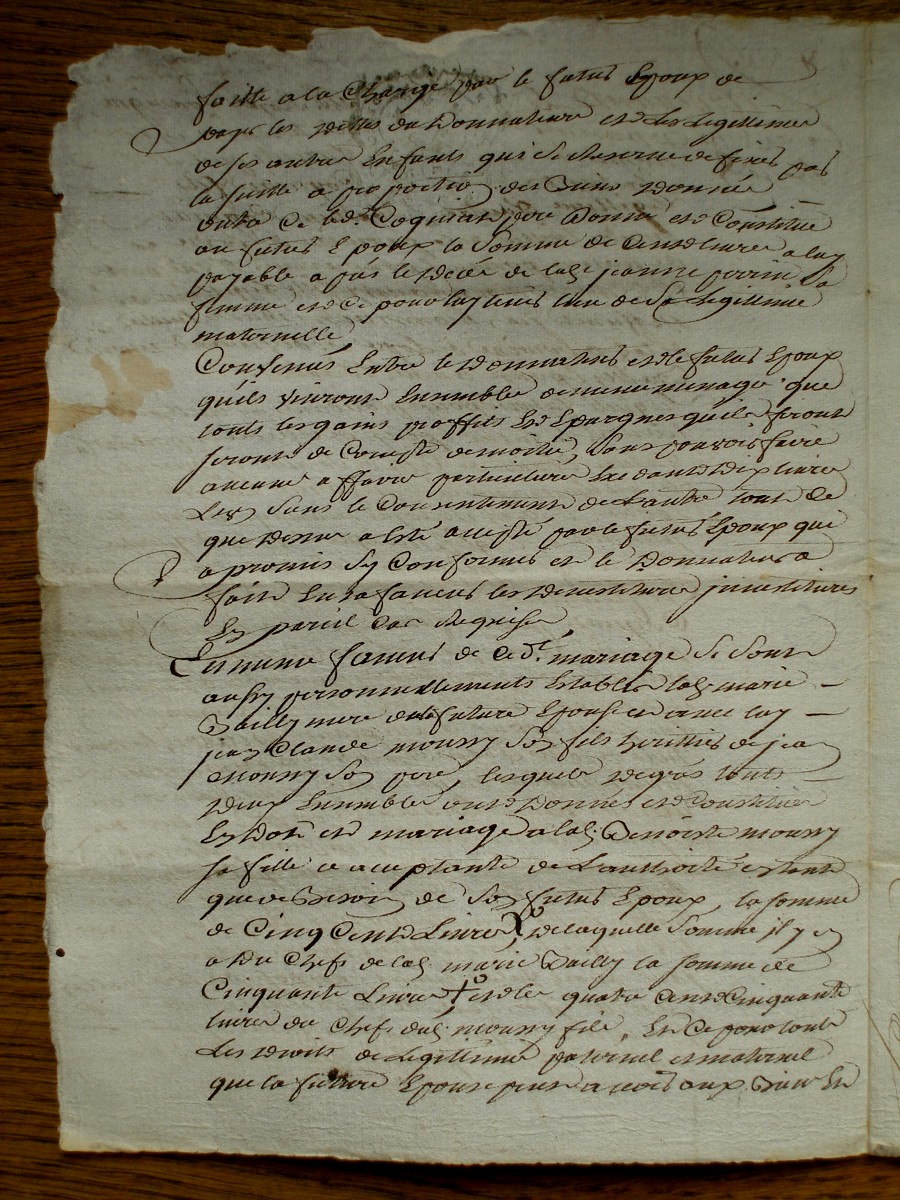 faitte a la charge par le futur Epoux de
payer les dettes du Donnateur et les Legittimes
de ses autres Enfants qui se de faire
la suitte a proportion des biens donnés
outre ce led. Coquiat pere Donne et Constitue
au futur Epoux la somme de Cent livres
payable apres le deces de lad. jeanne perrin sa
femme et ce pour luy tenir lieu de sa Legittime
maternelle
Convenus Entre le Donnateur et le futur Epoux
quils vivront Ensemble de meme menage que
touts les gains proffits Et Epargnes quils feront
seront de Compte de moitié, sans pouvoir faire
aucune affaire particuliere Excedante dix livres
Lun sans le Consentement de Lautre tout ce
que dessus a Eté accepté par le futur Epoux qui
a promis sy Conformer et le Donnateur a
fait En sa faveur les Devestiture jnvestitures
En pareil Cas Requises
En meme faveur de ce dt. mariage se sont
aussy personnellements Etablis lad. marie
Vailly mere de la future Epouse et avec luy
jean Claude moussy son fils herittier de jean
moussy son pere, lesquels de gres touts
deux Ensemble ont Donnés et Constitués
En Dot et mariage a lad. Benoiste moussy
sa fille ce acceptante de Lauthorité entant
que de besoin de son futur Epoux, la somme
de Cinq Cent Livres, de laquelle somme jl y en
a du Chef de lad. marie Vailly la somme de
Cinquante Livres et les quatre Cent Cinquante
livres du Chef dud. moussy fils, Et ce pour touts
Les droits de Legittime paternel et maternel
que la future Epouse peut avoir aux biens En